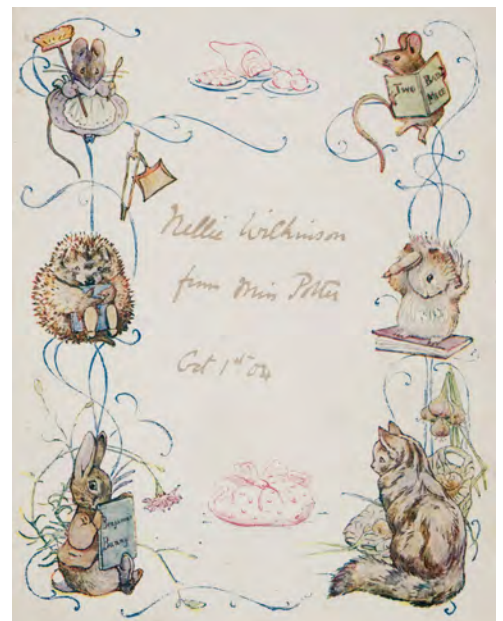 Two Bad
Mice
Nellie Wilkinson
from Miss Potter
Oct 1st 04
Benjamin
Bunny